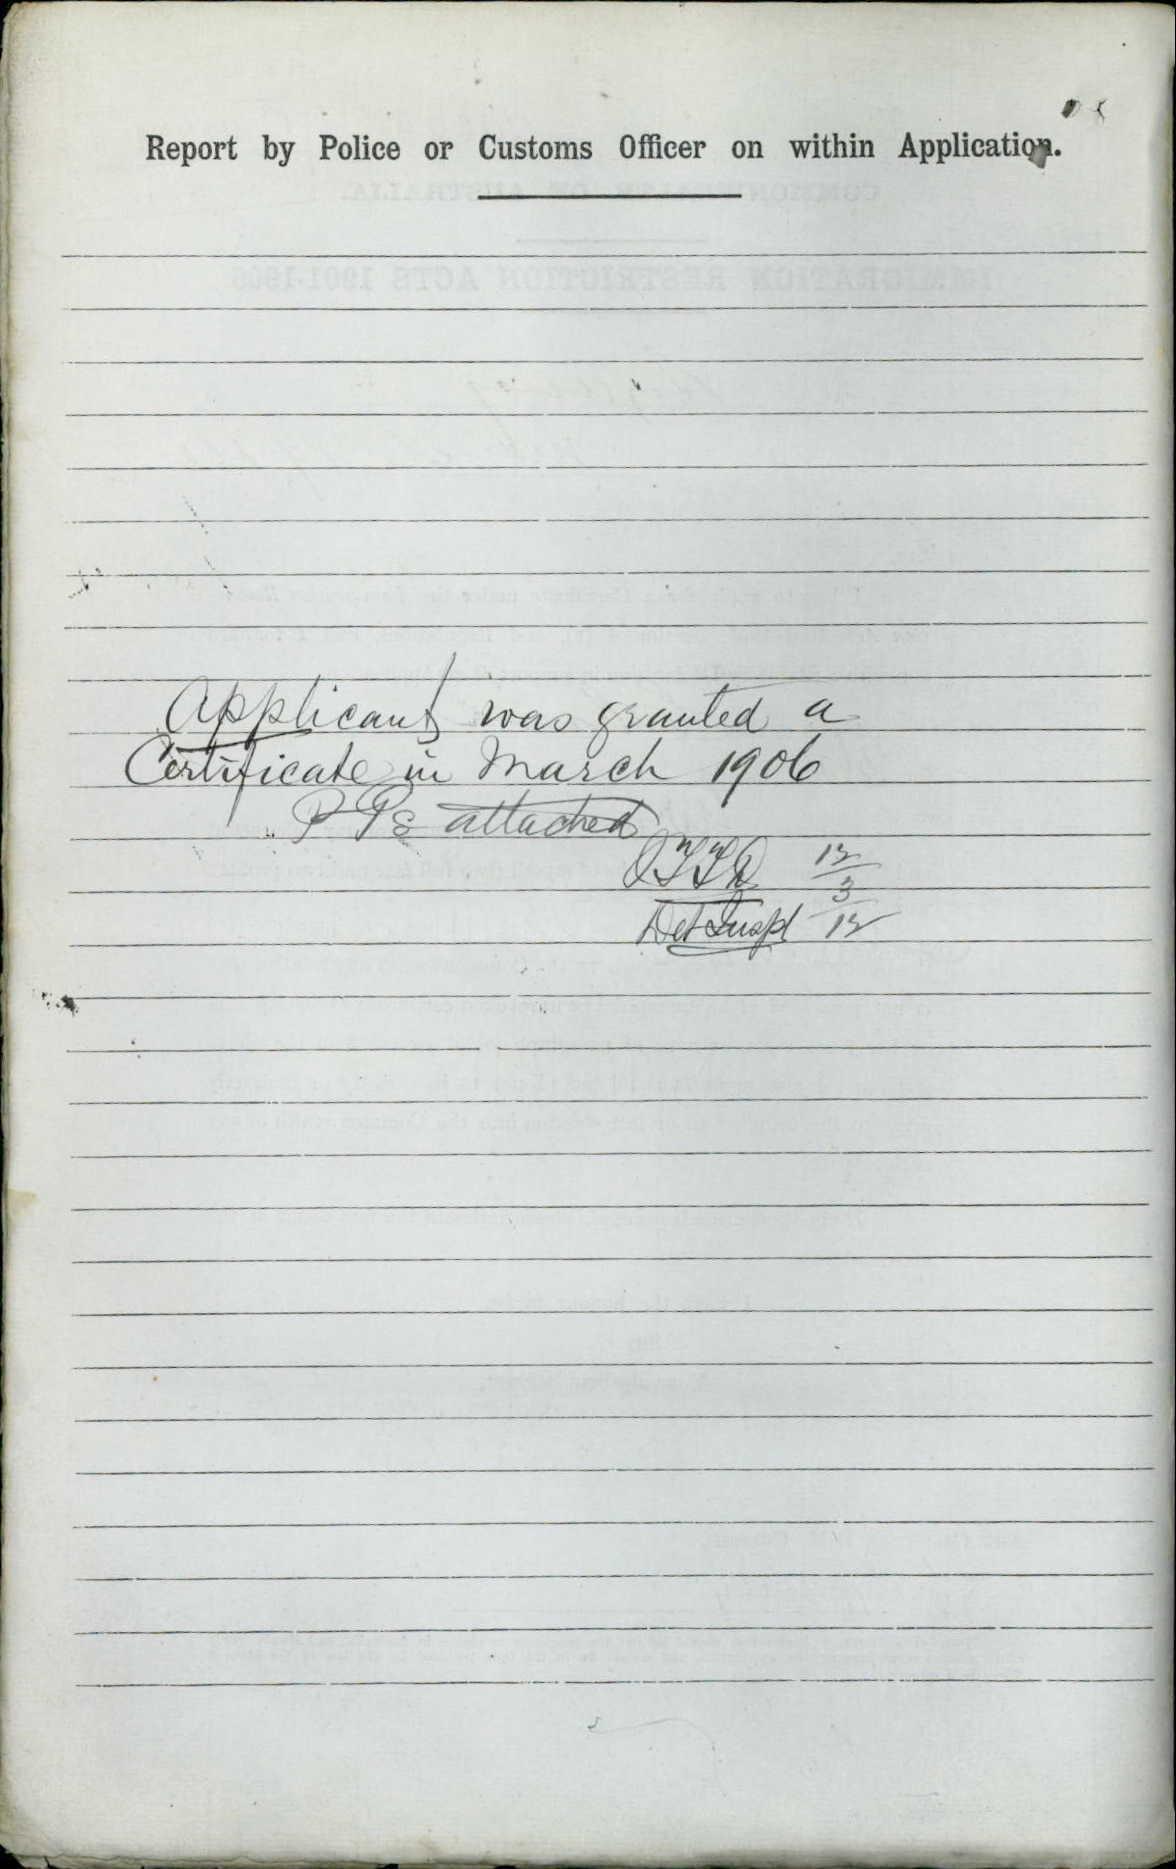 Report by Police or Customs Officer on within Application.
Applicant was granted a
Certificate in March 1906
P Ps attached
12/3/12
Det Inspr